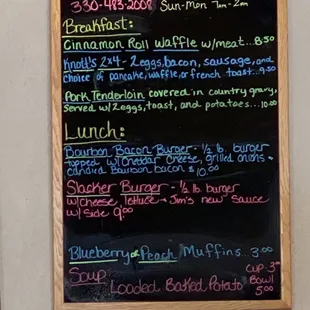 330-483-2008 Sun-Mon 7am-2pm
Breakfast:
Cinnamon Roll Waffle w/meat...8.50
Knoll's 2x4 - 2eggs, bacon, sausage, and
choice of pancake, waffle, or french toast...9.50
Pork Tenderloin covered in country gravy,
Served w/2eggs, toast, and potatoes...10.00
Lunch:
Bourbon Bacon Burger - 1/2 lb. burger
topped w/Cheddar Cheese, grilled onions &
Candied Bourbon bacon $10.00
Slacker Burger - 1/2 lb burger
w/cheese, lettuce & Jim's new Sauce
w/side 9.00
Blueberry or Peach Muffins...3.00
Soup Cup 3.00
Loaded Baked Potato Bowl
5.00